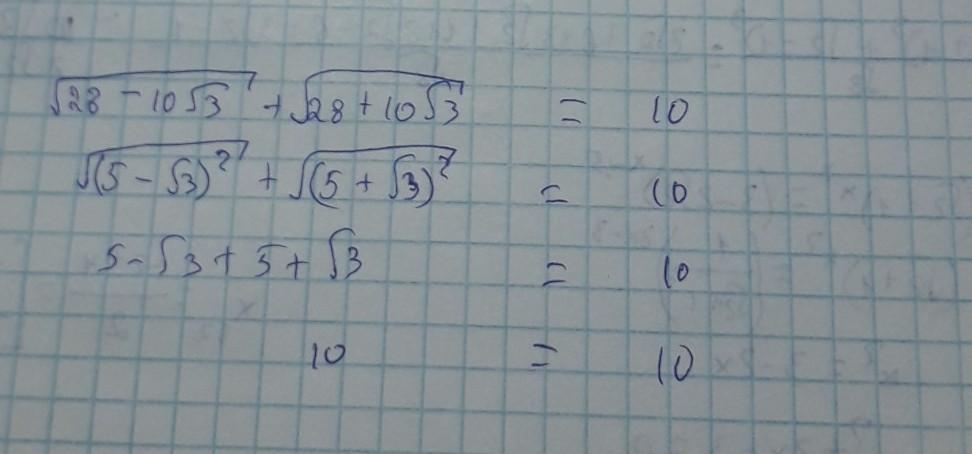 √28 - 10√3 + √28 + 10√3 = 10
√(5 - √3)² + √(5 + √3)² = 10
5 - √3 + 5 + √3 = 10
10 = 10